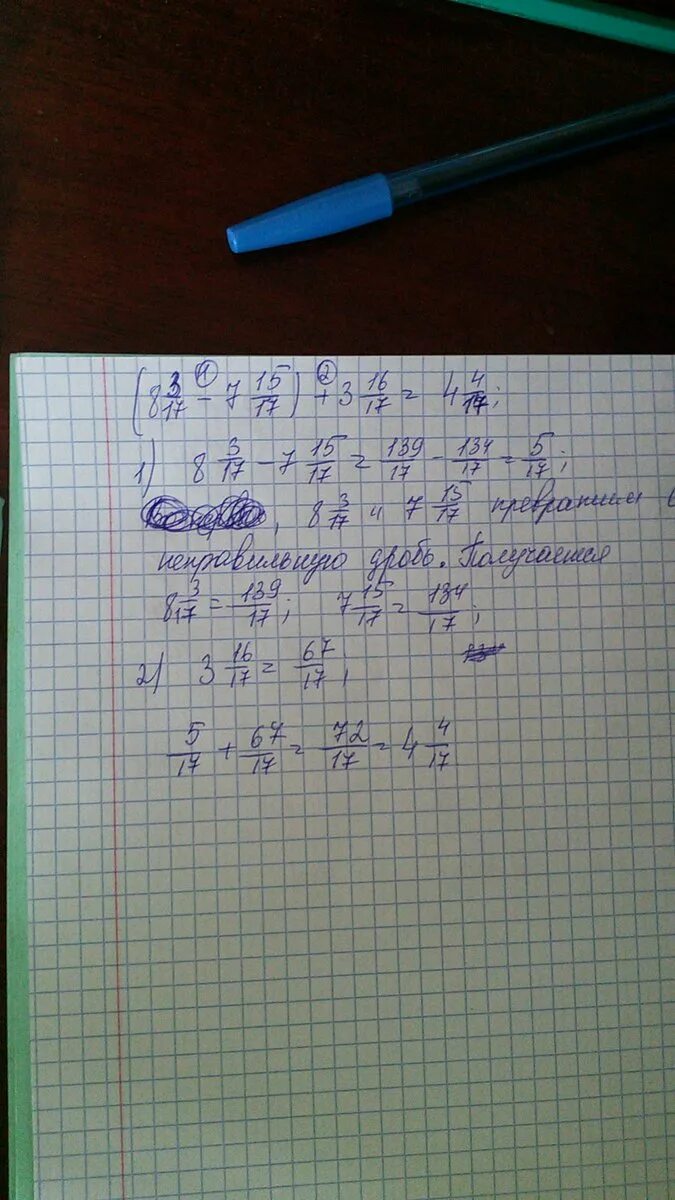 (8 3/17 - 7 15/17) + 3 16/17 = 4 4/17;
1 2
1) 8 3/17 - 7 15/17 = 139/17 - 134/17 = 5/17;
, 8 3/17 и 7 15/17 превратим в
неправильную дробь. Получается
8 3/17 = 139/17; 7 15/17 = 134/17;
2) 3 16/17 = 67/17;
5/17 + 67/17 = 72/17 = 4 4/17